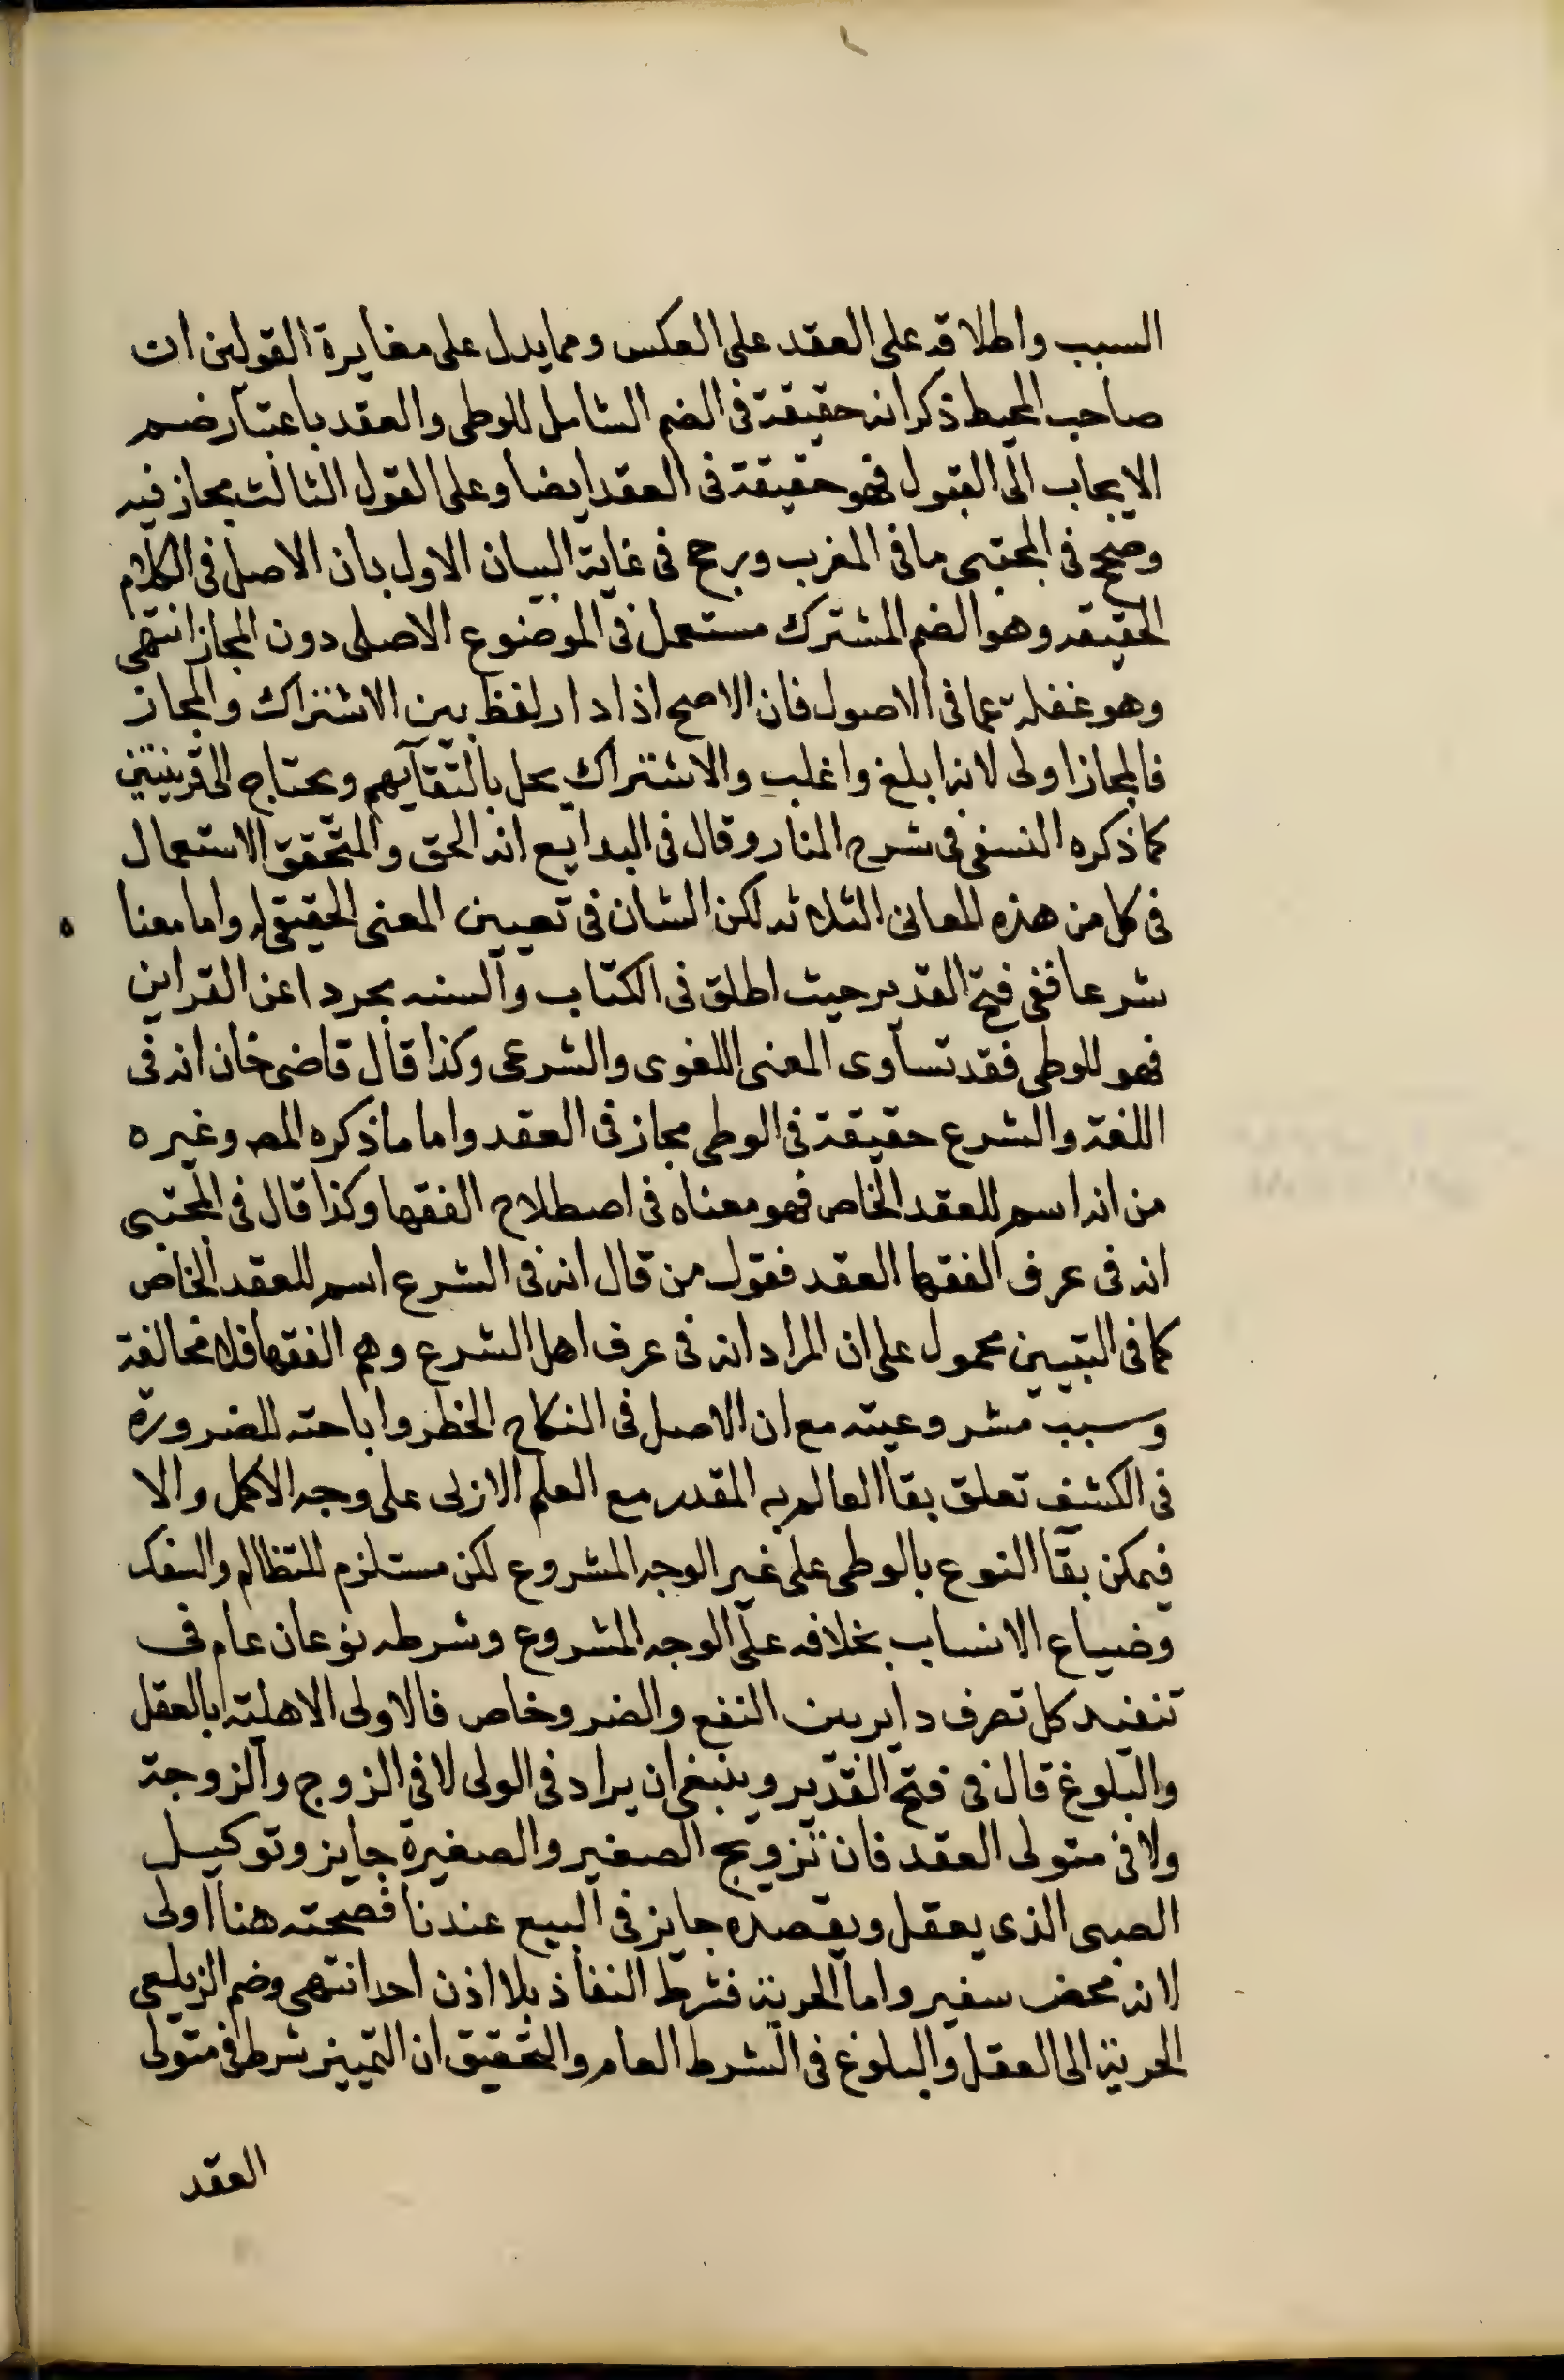 السبب واطلاقه على العقد على العكس ومما يدل على مغايرة القولين ان
صاحب المحيط ذكر انه حقيقة في الضم الشامل للوطي والعقد باعتبار ضم
الايجاب الى القبول فهو حقيقة في العقد ايضا وعلى القول الثالث مجاز فيه
وصحح في المجتبى ما في المغرب ورجح في غاية البيان الاول بان الاصل في الكلام
الحقيقه وهو الضم المشترك مستعمل في الموضوع الاصلى دون المجاز انتهى
وهو غفلة عما في الاصول فان الاصح اذا دار لفظ بين الاشتراك والمجاز
فالمجاز اولى لانه ابلغ واغلب والاشتراك يحل بالتفاهم ويحتاج الى قرينتين
كما ذكره النسفي في شرح المنار وقال في البدايع انه الحق والمتحقق الاستعمال
في كل من هذه المعاني الثلاثه لكن الشان في تعيين المعنى الحقيقي له واما معنا ه
شرعا ففي فتح القدير حيث اطلق في الكتاب والسنه مجردا عن القراين
فهو للوطي فقد تساوى المعنى اللغوى والشرعى وكذا قال قاضى خان انه في
اللغة والشرع حقيقة في الوطي مجاز في العقد واما ما ذكره المص وغيره
من انه اسم للعقد الخاص فهو معناه في اصطلاح الفقها وكذا قال في المجتبى
انه في عرف الفقها العقد فقول من قال انه في الشرع اسم للعقد الخاص
كما في التبيين محمول على ان المراد انه في عرف اهل الشرع وهم الفقها فلا مخالفة
وسبب مشروعيته مع ان الاصل في النكاح الحظر واباحته للضرورة
في الكشف تعلق بقا العالم به المقدر مع العلم الازلى على وجه الاكمل والا
فيمكن بقا النوع بالوطى على غير الوجه المشروع لكن مستلزم للتظالم والسفك
وضياع الانساب بخلافه على الوجه المشروع وشرطه نوعان عام في
تنفيد كل تصرف داير بين النفع والضر وخاص فالاولى الاهلية بالعقل
والبلوغ قال في فتح القدير وينبغى ان يراد في الولى لا في الزوج والزوجة
ولا في متولى العقد فان تزويج الصغير والصغيرة جايز وتوكيل
الصبى الذى يعقل ويقصده جايز في البيع عندنا فصحته هنا اولى
لانه محض سفير واما الحرية فشرط النفاذ بلا اذن احد انتهى وضم الزيلعى
الحرية الى العقل والبلوغ في الشرط العام والتحقيق ان التمييز شرط في متولى
العقد